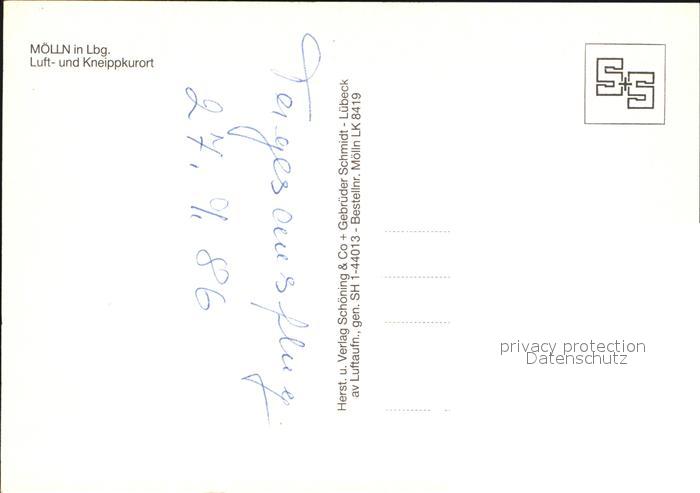 MÖLLN in Lbg.
Luft- und Kneippkurort
Tagesausflug
Herst. u. Verlag Schöning & Co + Gebrüder Schmidt - Lübeck
av Luftaufn., gen. SH 1-44013 - Bestellnr. Mölln LK 8419
S+S
privacy protection
Datenschutz